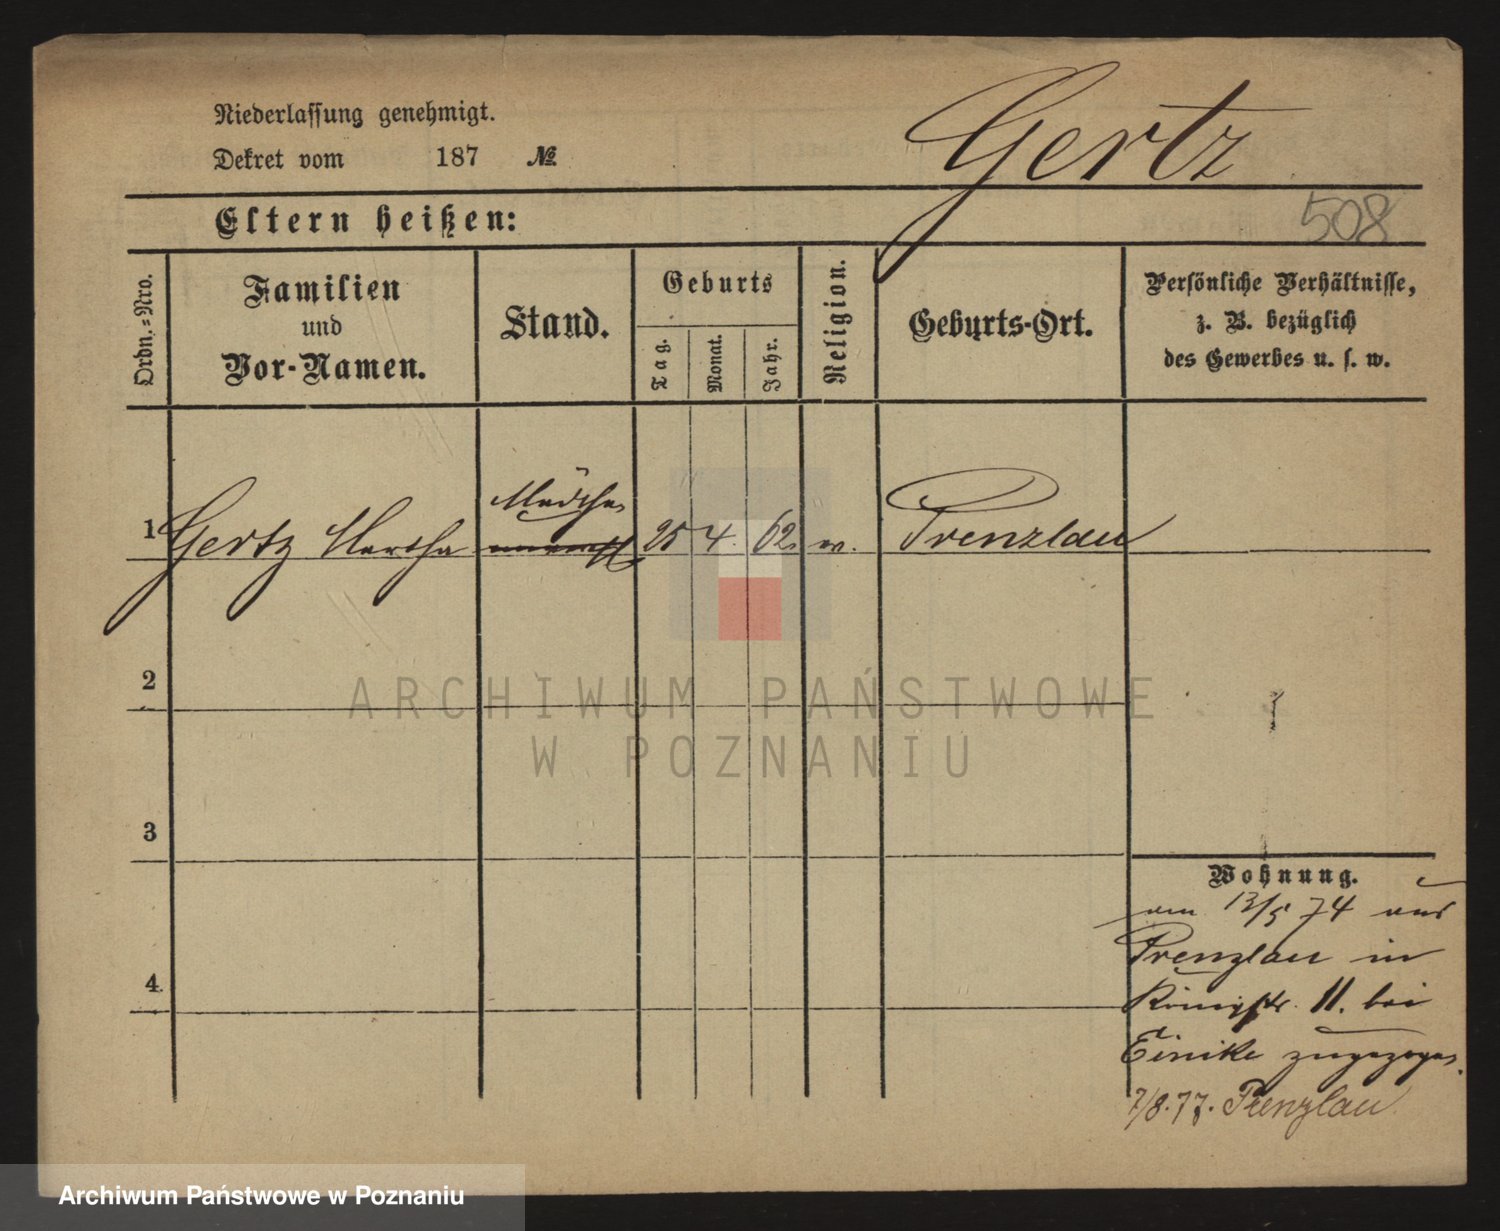 Niederlassung genehmigt.
Dekret vom 187 №
Gertz
Eltern heißen:
508
Ordn.-Nro.
Familien
und
Vor-Namen.
Stand.
Geburts
Tag.
Monat.
Jahr.
Religion.
Geburts-Ort.
Persönliche Verhältnisse,
z. B. bezüglich
des Gewerbes u. s. w.
Mädchen
1 Gertz Martha 25 4. 62. w. Prenzlau
2
ARCHIWUM PAŃSTWOWE
W POZNANIU
3
Wohnung.
am 13/5 74 aus
Prenzlau in
4
Königstr. 11. bei
Einike zugezogen.
7/8.77. Prenzlau
Archiwum Państwowe w Poznaniu